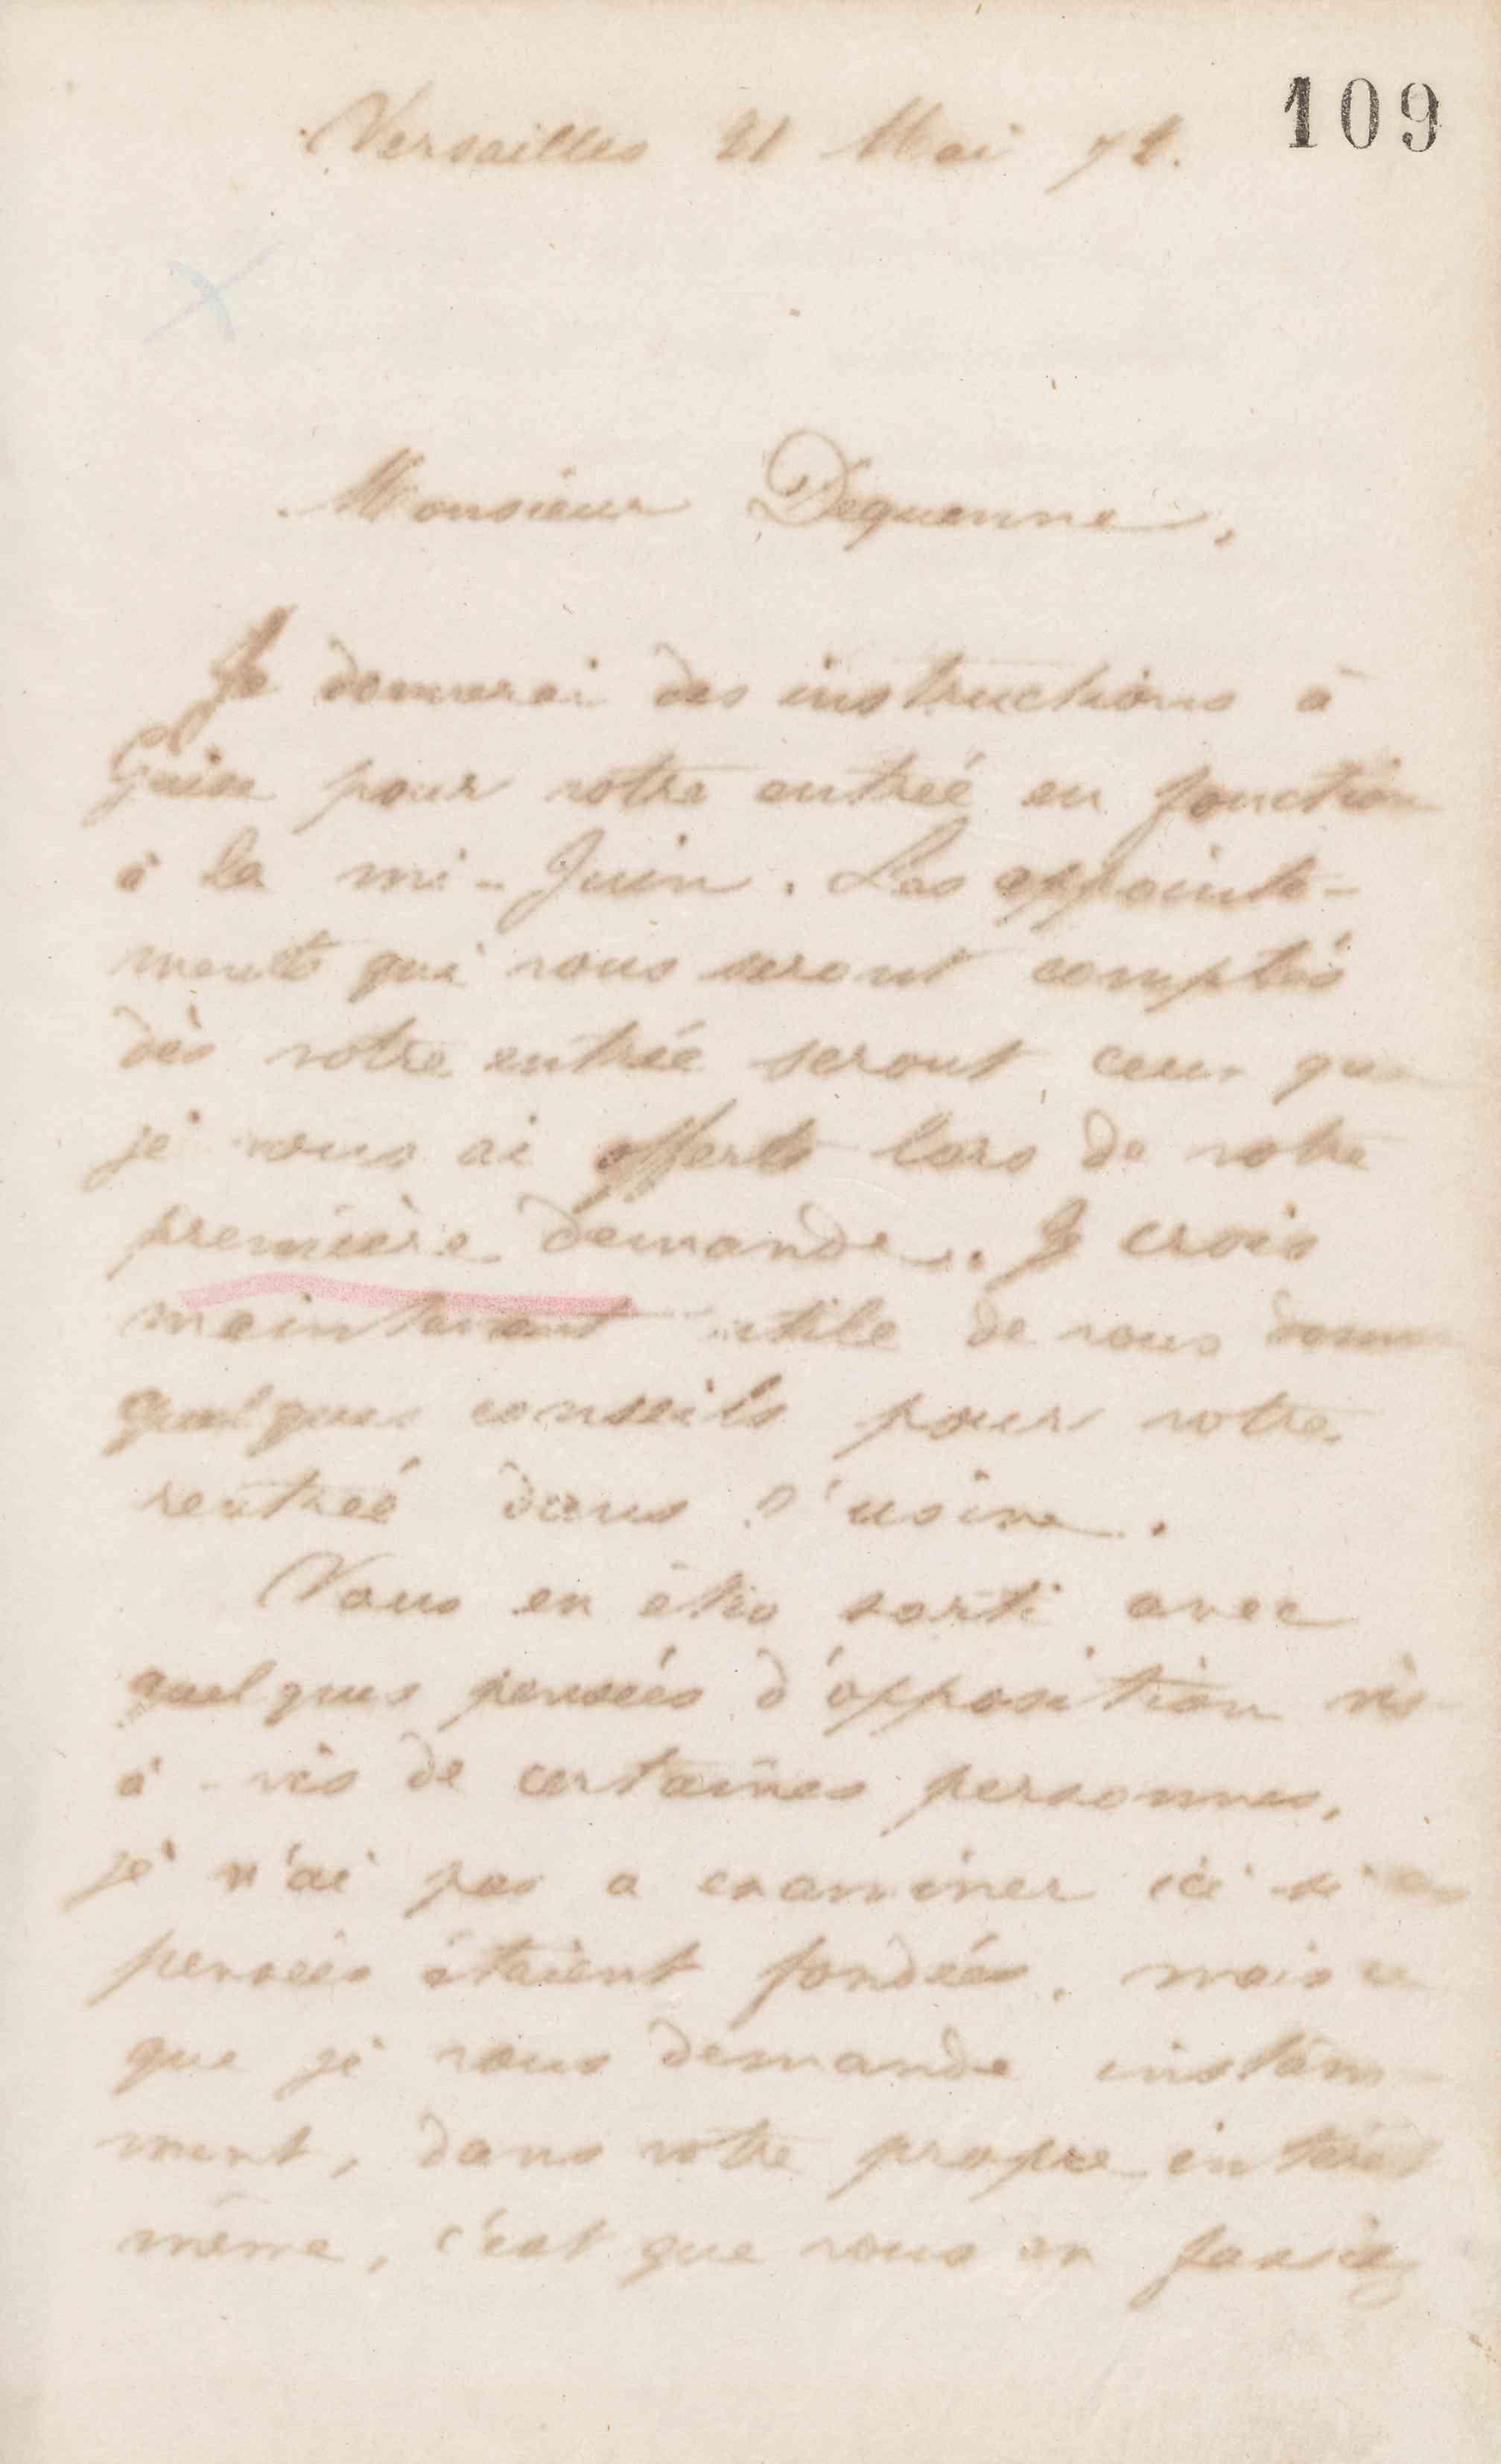 109
Versailles 21 Mai 72.
Monsieur Dequenne,
Je donnerai des instructions à
Guise pour votre entreé en fonction
à la mi-Juin. Les appointe-
ments qui vous seront comptés
dès votre entrée seront ceux que
je vous ai offerts lors de votre
première demande. Je crois
maintenant utile de vous donner
quelques conseils pour votre
rentreé dans l'usine.
Vous en êtes sorti avec
quelques pensées d'opposition vis-
à-vis de certaines personnes,
je n'ai pas a examiner ici si ces
pensées étaient fondées, mais ce
que je vous demande instam-
ment, dans votre propre intérêt
même, c'est que vous en fassiez